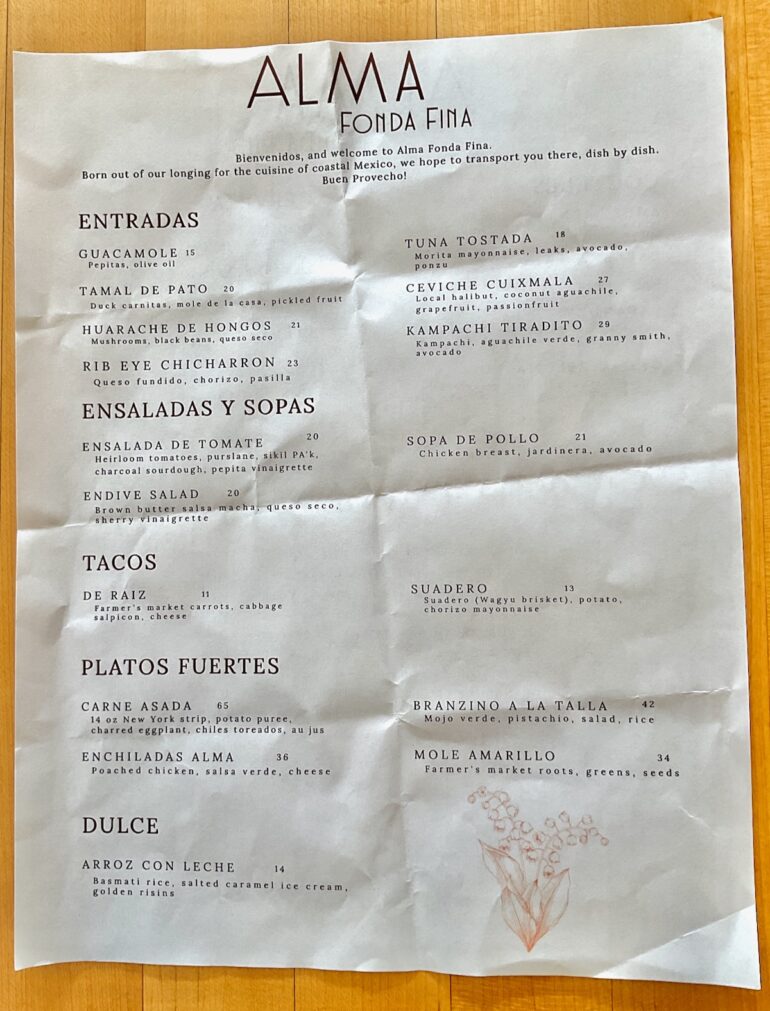 ALMA
FONDA FINA
Bienvenidos, and welcome to Alma Fonda Fina.
Born out of our longing for the cuisine of coastal Mexico, we hope to transport you there, dish by dish.
Buen Provecho!
ENTRADAS
GUACAMOLE 15
Pepitas, olive oil
TAMAL DE PATO 20
Duck carnitas, mole de la casa, pickled fruit
HUARACHE DE HONGOS 21
Mushrooms, black beans, queso seco
RIB EYE CHICHARRON 23
Queso fundido, chorizo, pasilla
TUNA TOSTADA 18
Morita mayonnaise, leaks, avocado,
ponzu
CEVICHE CUIXMALA 27
Local halibut, coconut aguachile,
grapefruit, passionfruit
KAMPACHI TIRADITO 29
Kampachi, aguachile verde, granny smith,
avocado
ENSALADAS Y SOPAS
ENSALADA DE TOMATE 20
Heirloom tomatoes, purslane, sikil PA'k,
charcoal sourdough, pepita vinaigrette
ENDIVE SALAD 20
Brown butter salsa macha, queso seco,
sherry vinaigrette
SOPA DE POLLO 21
Chicken breast, jardinera, avocado
TACOS
DE RAIZ 11
Farmer's market carrots, cabbage
salpicon, cheese
SUADERO 13
Suadero (Wagyu brisket), potato,
chorizo mayonnaise
PLATOS FUERTES
CARNE ASADA 65
14 oz New York strip, potato puree,
charred eggplant, chiles toreados, au jus
ENCHILADAS ALMA 36
Poached chicken, salsa verde, cheese
BRANZINO A LA TALLA 42
Mojo verde, pistachio, salad, rice
MOLE AMARILLO 34
Farmer's market roots, greens, seeds
DULCE
ARROZ CON LECHE 14
Basmati rice, salted caramel ice cream,
golden risins